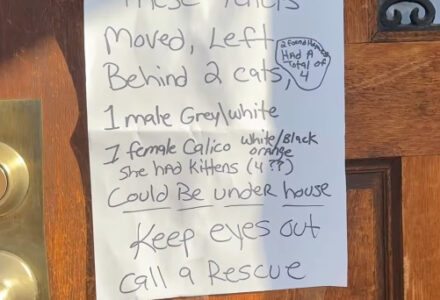 These
Moved, Left
Behind 2 cats,
2 Found Homes
HAD A
Total of
4
1 male Grey\white
1 female Calico white/Black
orange
She had Kittens (4??)
Could Be under house
Keep eyes out
Call a Rescue